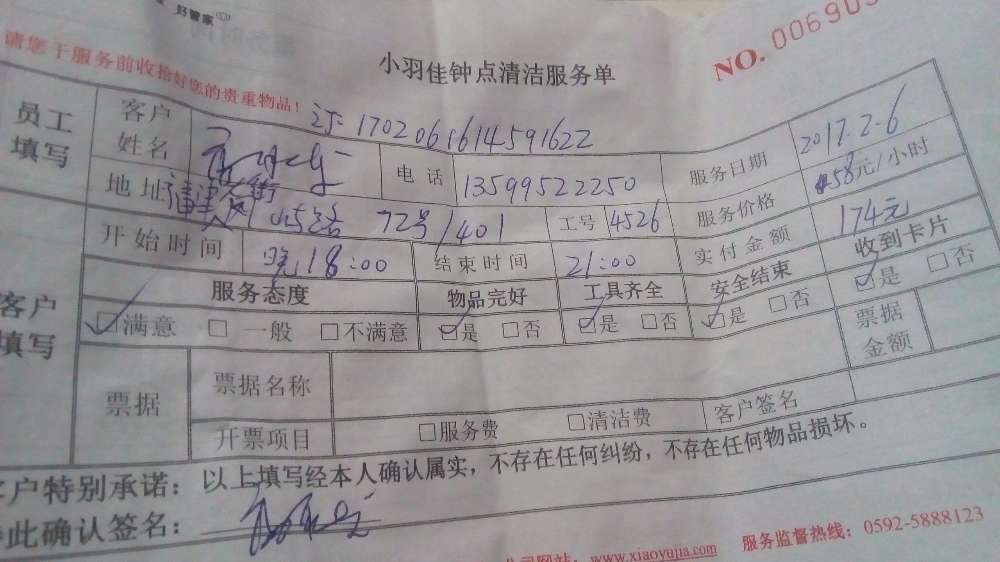 好管家
请您于服务前收拾好您的贵重物品！
小羽佳钟点清洁服务单
NO. 006905
员工填写
客户姓名
1702061614591622
电话 13599522250
服务日期 2017.2-6
地址
72号/401
工号 4526
服务价格 58元/小时
开始时间 晚18:00
结束时间 21:00
实付金额 174元
客户填写
服务态度 物品完好 工具齐全 安全结束 收到卡片
☑满意 □一般 □不满意 ☑是 □否 ☑是 □否 ☑是 □否 ☑是 □否
票据
票据名称
票据金额
开票项目 □服务费 □清洁费 客户签名
客户特别承诺：以上填写经本人确认属实，不存在任何纠纷，不存在任何物品损坏。
此确认签名：
网站：www.xiaoyujia.com 服务监督热线：0592-5888123